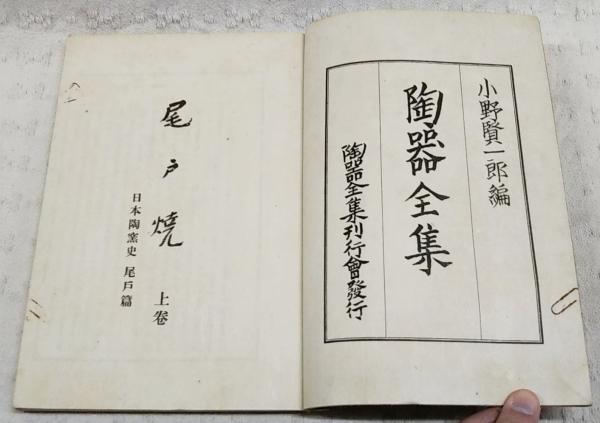 小野賢一郎編
陶器全集
陶器全集刊行會發行
尾戸燒
上卷
日本陶窯史 尾戸篇